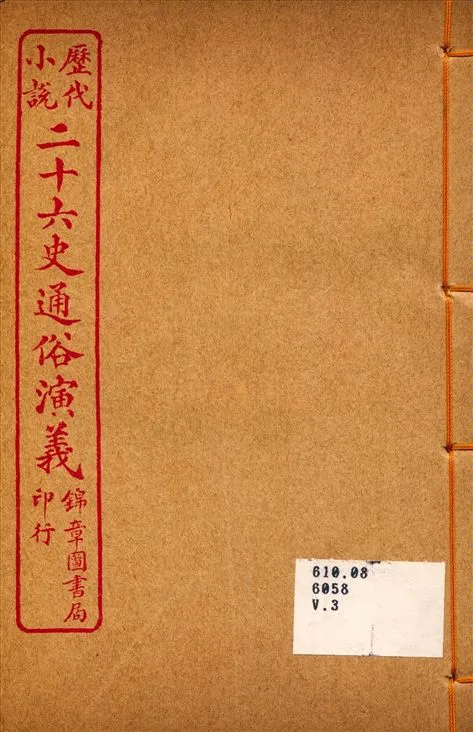 歷代
小說
二十六史通俗演義
錦章圖書局
印行
610.08
6058
V.3